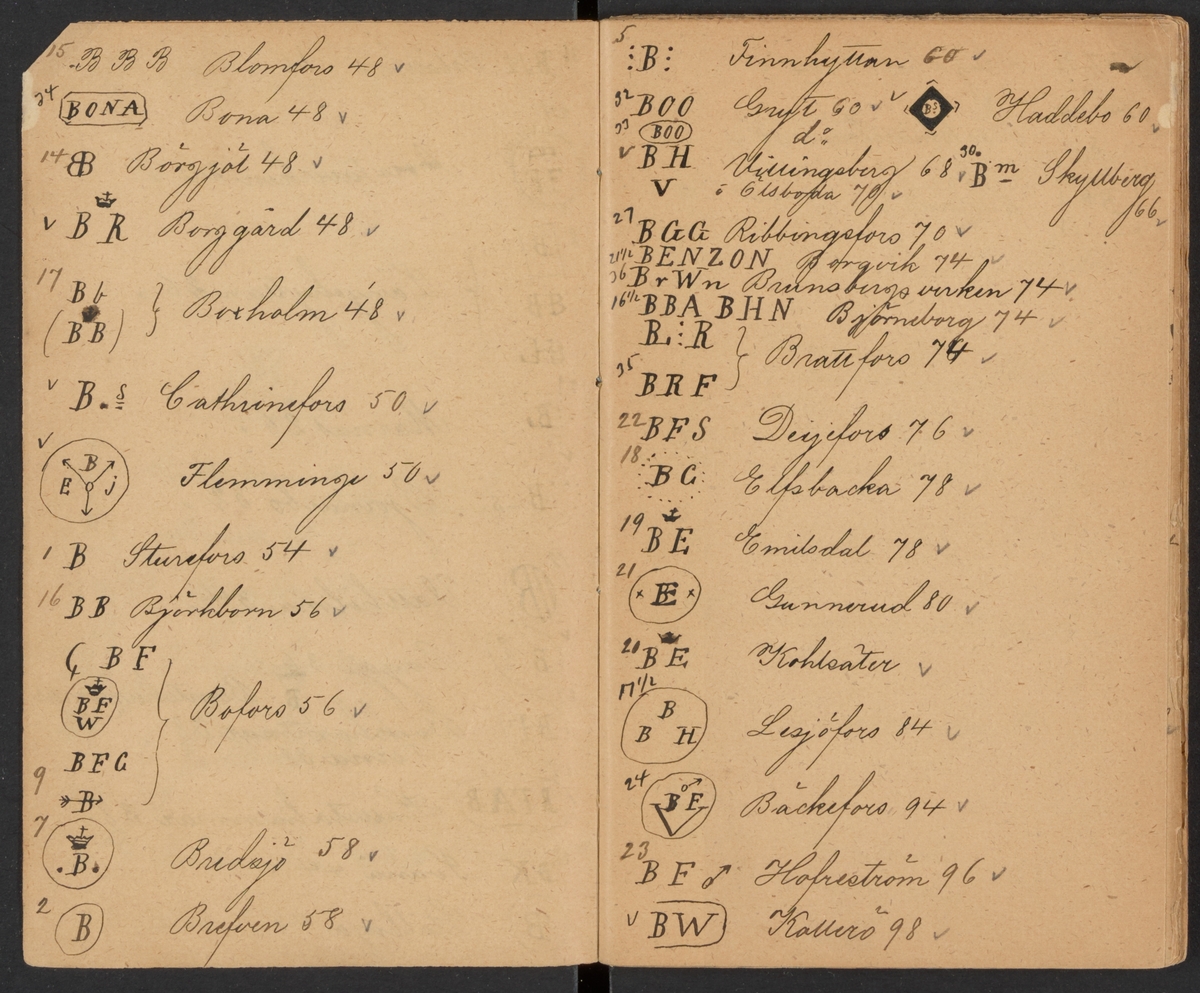 15 B B B Blomfors 48 ✓
24 BONA Bona 48 ✓
14 BB Börgjöl 48 ✓
✓ B R Borggård 48 ✓
17 B b
(BB) } Boxholm 48 ✓
✓ B. s Cathrinefors 50 ✓
✓ B E j Flemminge 50 ✓
1 B Sturefors 54 ✓
16 BB Björkborn 56 ✓
B F
BF W } Bofors 56 ✓
B F G
9 B
7 .B. Bredsjö 58 ✓
2 B Brefven 58 ✓
5 :B: Finnhyttan 60 ✓
32 BOO Gryt 60 ✓ ✓ B S Haddebo 60 ✓
33 BOO do
✓ B H Wittingsberg 68 ✓ 30. B m Skyllberg 66 ✓
V o Elsboda 70 ✓
27 B G G Ribbingsfors 70 ✓
21 1/2 BENZON Borgvik 74 ✓
36 BrWn Brunsbergs verken 74 ✓
16 1/2 BBA BHN Björneborg 74 ✓
B.:R
35 BRF } Brattfors 74 ✓
22 BFS Dejefors 76 ✓
18 B C Elfsbacka 78 ✓
19 B E Emilsdal 78 ✓
21 × BE × Gunnerud 80 ✓
20 B E Kohlsäter ✓
17 1/2 B B H Lesjöfors 84 ✓
24 B F Bäckefors 94 ✓
23 B F ♂ Hofreström 96 ✓
✓ BW Kollerö 98 ✓